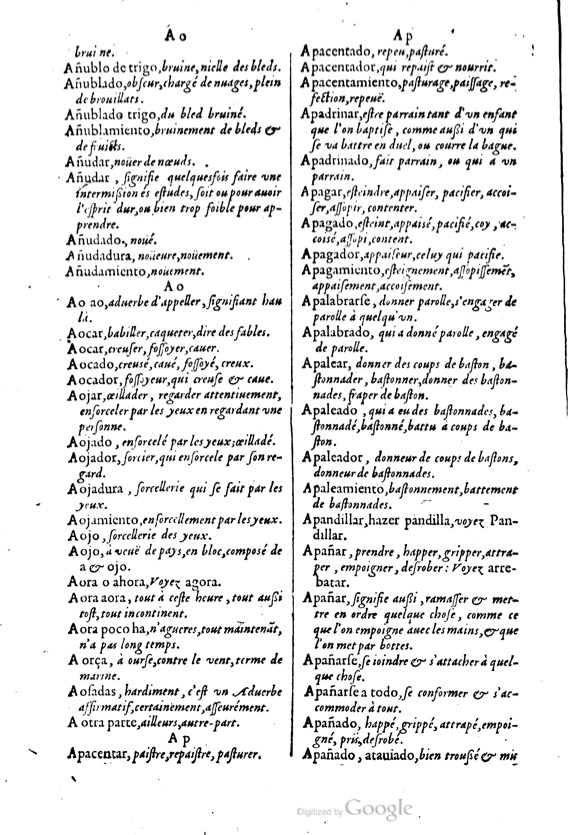 Ao
bruine.
Añublo de trigo, bruine, nielle des bleds.
Añublado, obſcur, chargé de nuages, plein
de brouillats.
Añublado trigo, du bled bruiné.
Añublamiento, bruinement de bleds &
de fruicts.
Añudar, noüer de nœuds.
Añudar, ſignifie quelquesfois faire vne
intermiſsiõ és eſtudes, ſoit ou pour auoir
l'eſprit dur, ou bien trop foible pour ap-
prendre.
Añudado, noüé.
Añudadura, noüeure, noüement.
Añudamiento, noüement.
Ao
Ao ao, aduerbe d'appeller, ſignifiant hau
là.
Aocar, babiller, caqueter, dire des fables.
Aocar, creuſer, foſſoyer, cauer.
Aocado, creuſé, caué, foſſoyé, creux.
Aocador, foſſoyeur, qui creuſe & caue.
Aojar, œillader, regarder attentiuement,
enſorceler par les yeux en regardant vne
perſonne.
Aojado, enſorcelé par les yeux; œilladé.
Aojador, ſorcier, qui enſorcele par ſon re-
gard.
Aojadura, ſorcellerie qui ſe fait par les
yeux.
Aojamiento, enſorcellement par les yeux.
Aojo, ſorcellerie des yeux.
Aojo, à veuë de pays, en bloc, compoſé de
a & ojo.
Aora o ahora, Voyez agora.
Aora aora, tout à ceſte heure, tout außi
toſt, tout incontinent.
Aora poco ha, n'agueres, tout maintenãt,
n'a pas long temps.
A orça, à ourſe, contre le vent, terme de
marine.
Aoſadas, hardiment, c'eſt vn Aduerbe
affirmatif, certainement, aſſeurément.
A otra parte, ailleurs, autre-part.
Ap
Apacentar, paiſtre, repaiſtre, paſturer.
Ap
Apacentado, repeu, paſturé.
Apacentador, qui repaiſt & nourrit.
Apacentamiento, paſturage, paiſſage, re-
fection, repeuë.
Apadrinar, eſtre parrain tant d'vn enfant
que l'on baptiſe, comme außi d'vn qui
ſe va battre en duel, ou courre la bague.
Apadrinado, fait parrain, ou qui a vn
parrain.
Apagar, eſteindre, appaiſer, pacifier, accoi-
ſer, aſſopir, contenter.
Apagado, eſteint, appaiſé, pacifié, coy, ac-
coisé, aſſopi, content.
Apagador, appaiſeur, celuy qui pacifie.
Apagamiento, eſteignement, aſſopiſſemẽt,
appaiſement, accoiſement.
Apalabrarſe, donner parolle, s'engager de
parole à quelqu'vn.
Apalabrado, qui a donné parolle, engagé
de parolle.
Apalear, donner des coups de baſton, ba-
ſtonnader, baſtonner, donner des baſton-
nades, fraper de baſton.
Apaleado, qui a eu des baſtonnades, ba-
ſtonnadé, baſtonné, battu à coups de ba-
ſton.
Apaleador, donneur de coups de baſtons,
donneur de baſtonnades.
Apaleamiento, baſtonnement, battement
de baſtonnades.
Apandillar, hazer pandilla, voyez Pan-
dillar.
Apañar, prendre, happer, gripper, attra-
per, empoigner, deſrober: Voyez arre-
batar.
Apañar, ſignifie außi, ramaſſer & met-
tre en ordre quelque choſe, comme ce
que l'on empoigne auec les mains, & que
l'on met par bottes.
Apañarſe, ſe ioindre & s'attacher à quel-
que choſe.
Apañarſe a todo, ſe conformer & s'ac-
commoder à tout.
Apañado, happé, grippé, attrapé, empoi-
gné, pris, deſrobé.
Apañado, atauiado, bien troußé & mis
Digitized by Google